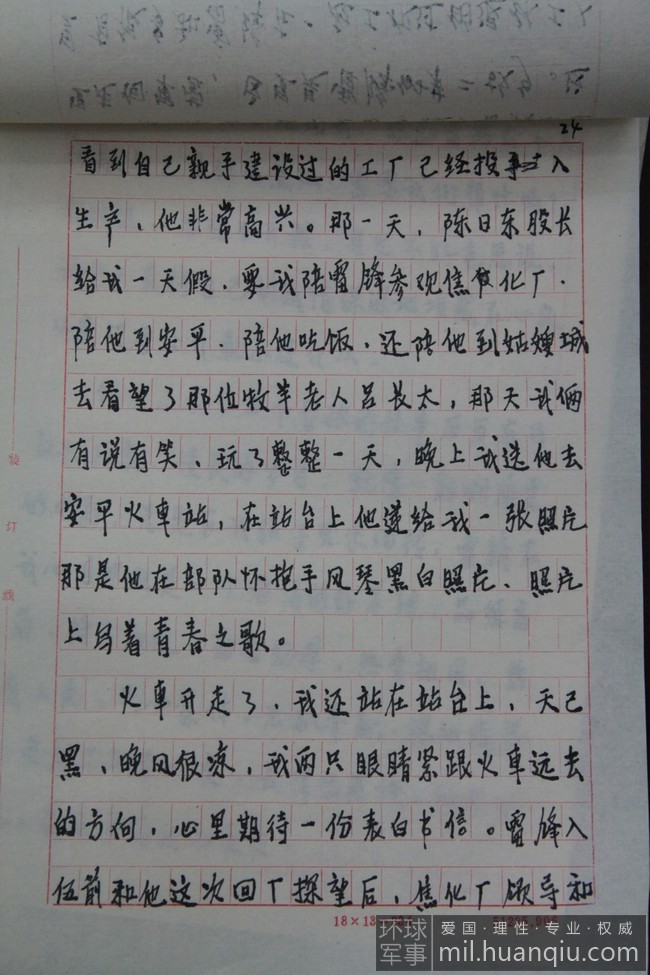 24
看到自己親手建设过的工厂已经投入
生产,他非常高兴。那一天,陈日东股长
给我一天假,要我陪雷锋参观焦化厂.
陪他到安平.陪他吃饭.还陪他到姑嫂城
去看望了那位牧羊老人吕长太,那天我俩
有说有笑、玩了整整一天,晚上我送他去
安平火車站,在站台上他递给我一张照片
那是他在部队怀抱手风琴黑白照片、照片
上写着青春之歌。
火車开走了,我还站在站台上,天已
黑、晚风很凉,我两只眼睛紧跟火車远去
的方向,心里期待一份表白书信。雷锋入
伍前和他这次回厂探望后,焦化厂领导和
装
订
线
环球
军事
爱国·理性·专业·权威
mil.huanqiu.com